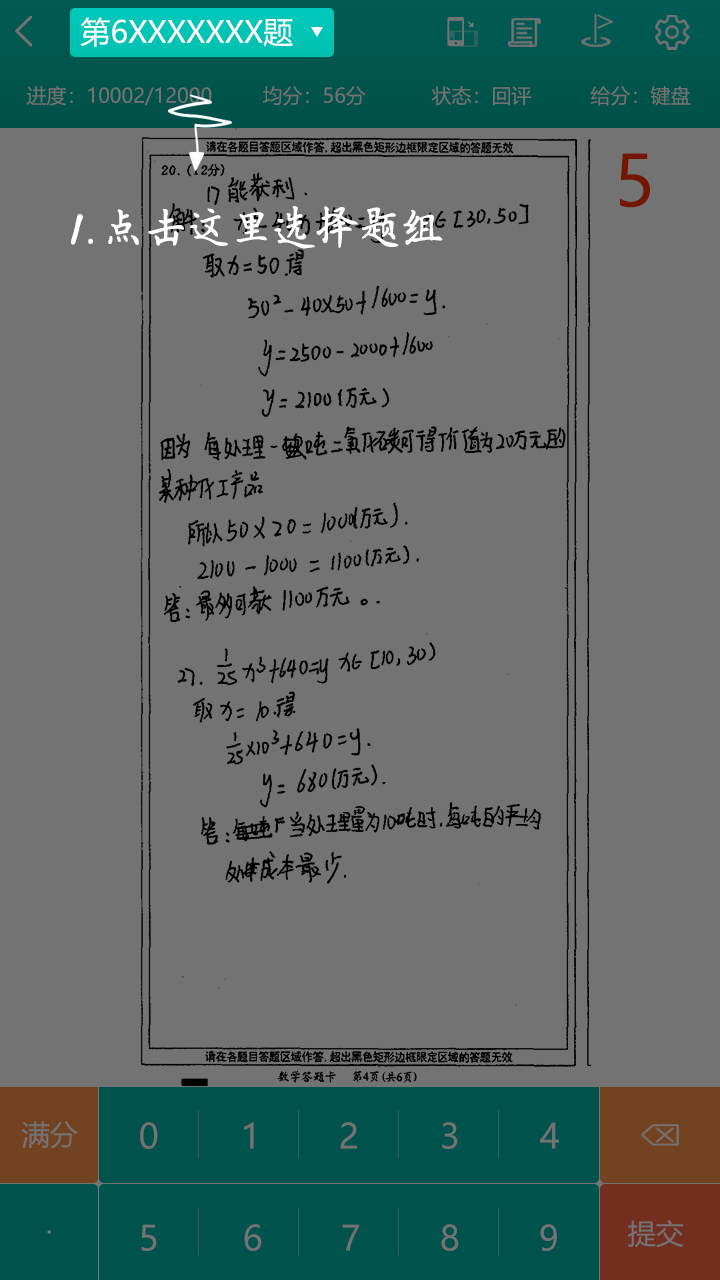 第6XXXXXXX题
进度：10002/12000 均分：56分 状态：回评 给分：键盘
请在各题目答题区域作答，超出黑色矩形边框限定区域的答题无效
5
20．(12分)
1) 能获利．
1.点击这里选择题组
∈[30,50]
取x=50得
50²-40×50+1600=y.
y=2500-2000+1600
y=2100(万元)
因为 每处理一吨二氧化碳可得价值为20万元的
某种化工产品
所以50×20=1000(万元).
2100-1000=1100(万元).
答：最多可获 1100万元。.
27. 1/25 x³+640=y x∈[10,30)
取x=10.得
1/25×10³+640=y.
y=680(万元).
答：当处理量为10吨时,每吨的平均
成本最少.
请在各题目答题区域作答，超出黑色矩形边框限定区域的答题无效
数学答题卡 第4页(共6页)
满分 0 1 2 3 4
· 5 6 7 8 9 提交